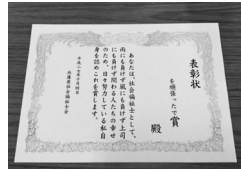 表彰状
を頑張ったで賞
殿
あなたは、社会福祉士として、
雨にも負けず風にも負けず上司
にも負けず関わる人たちの幸せ
のため、日々努力している私自
身を認めこれを賞します。
兵庫県社会福祉士会